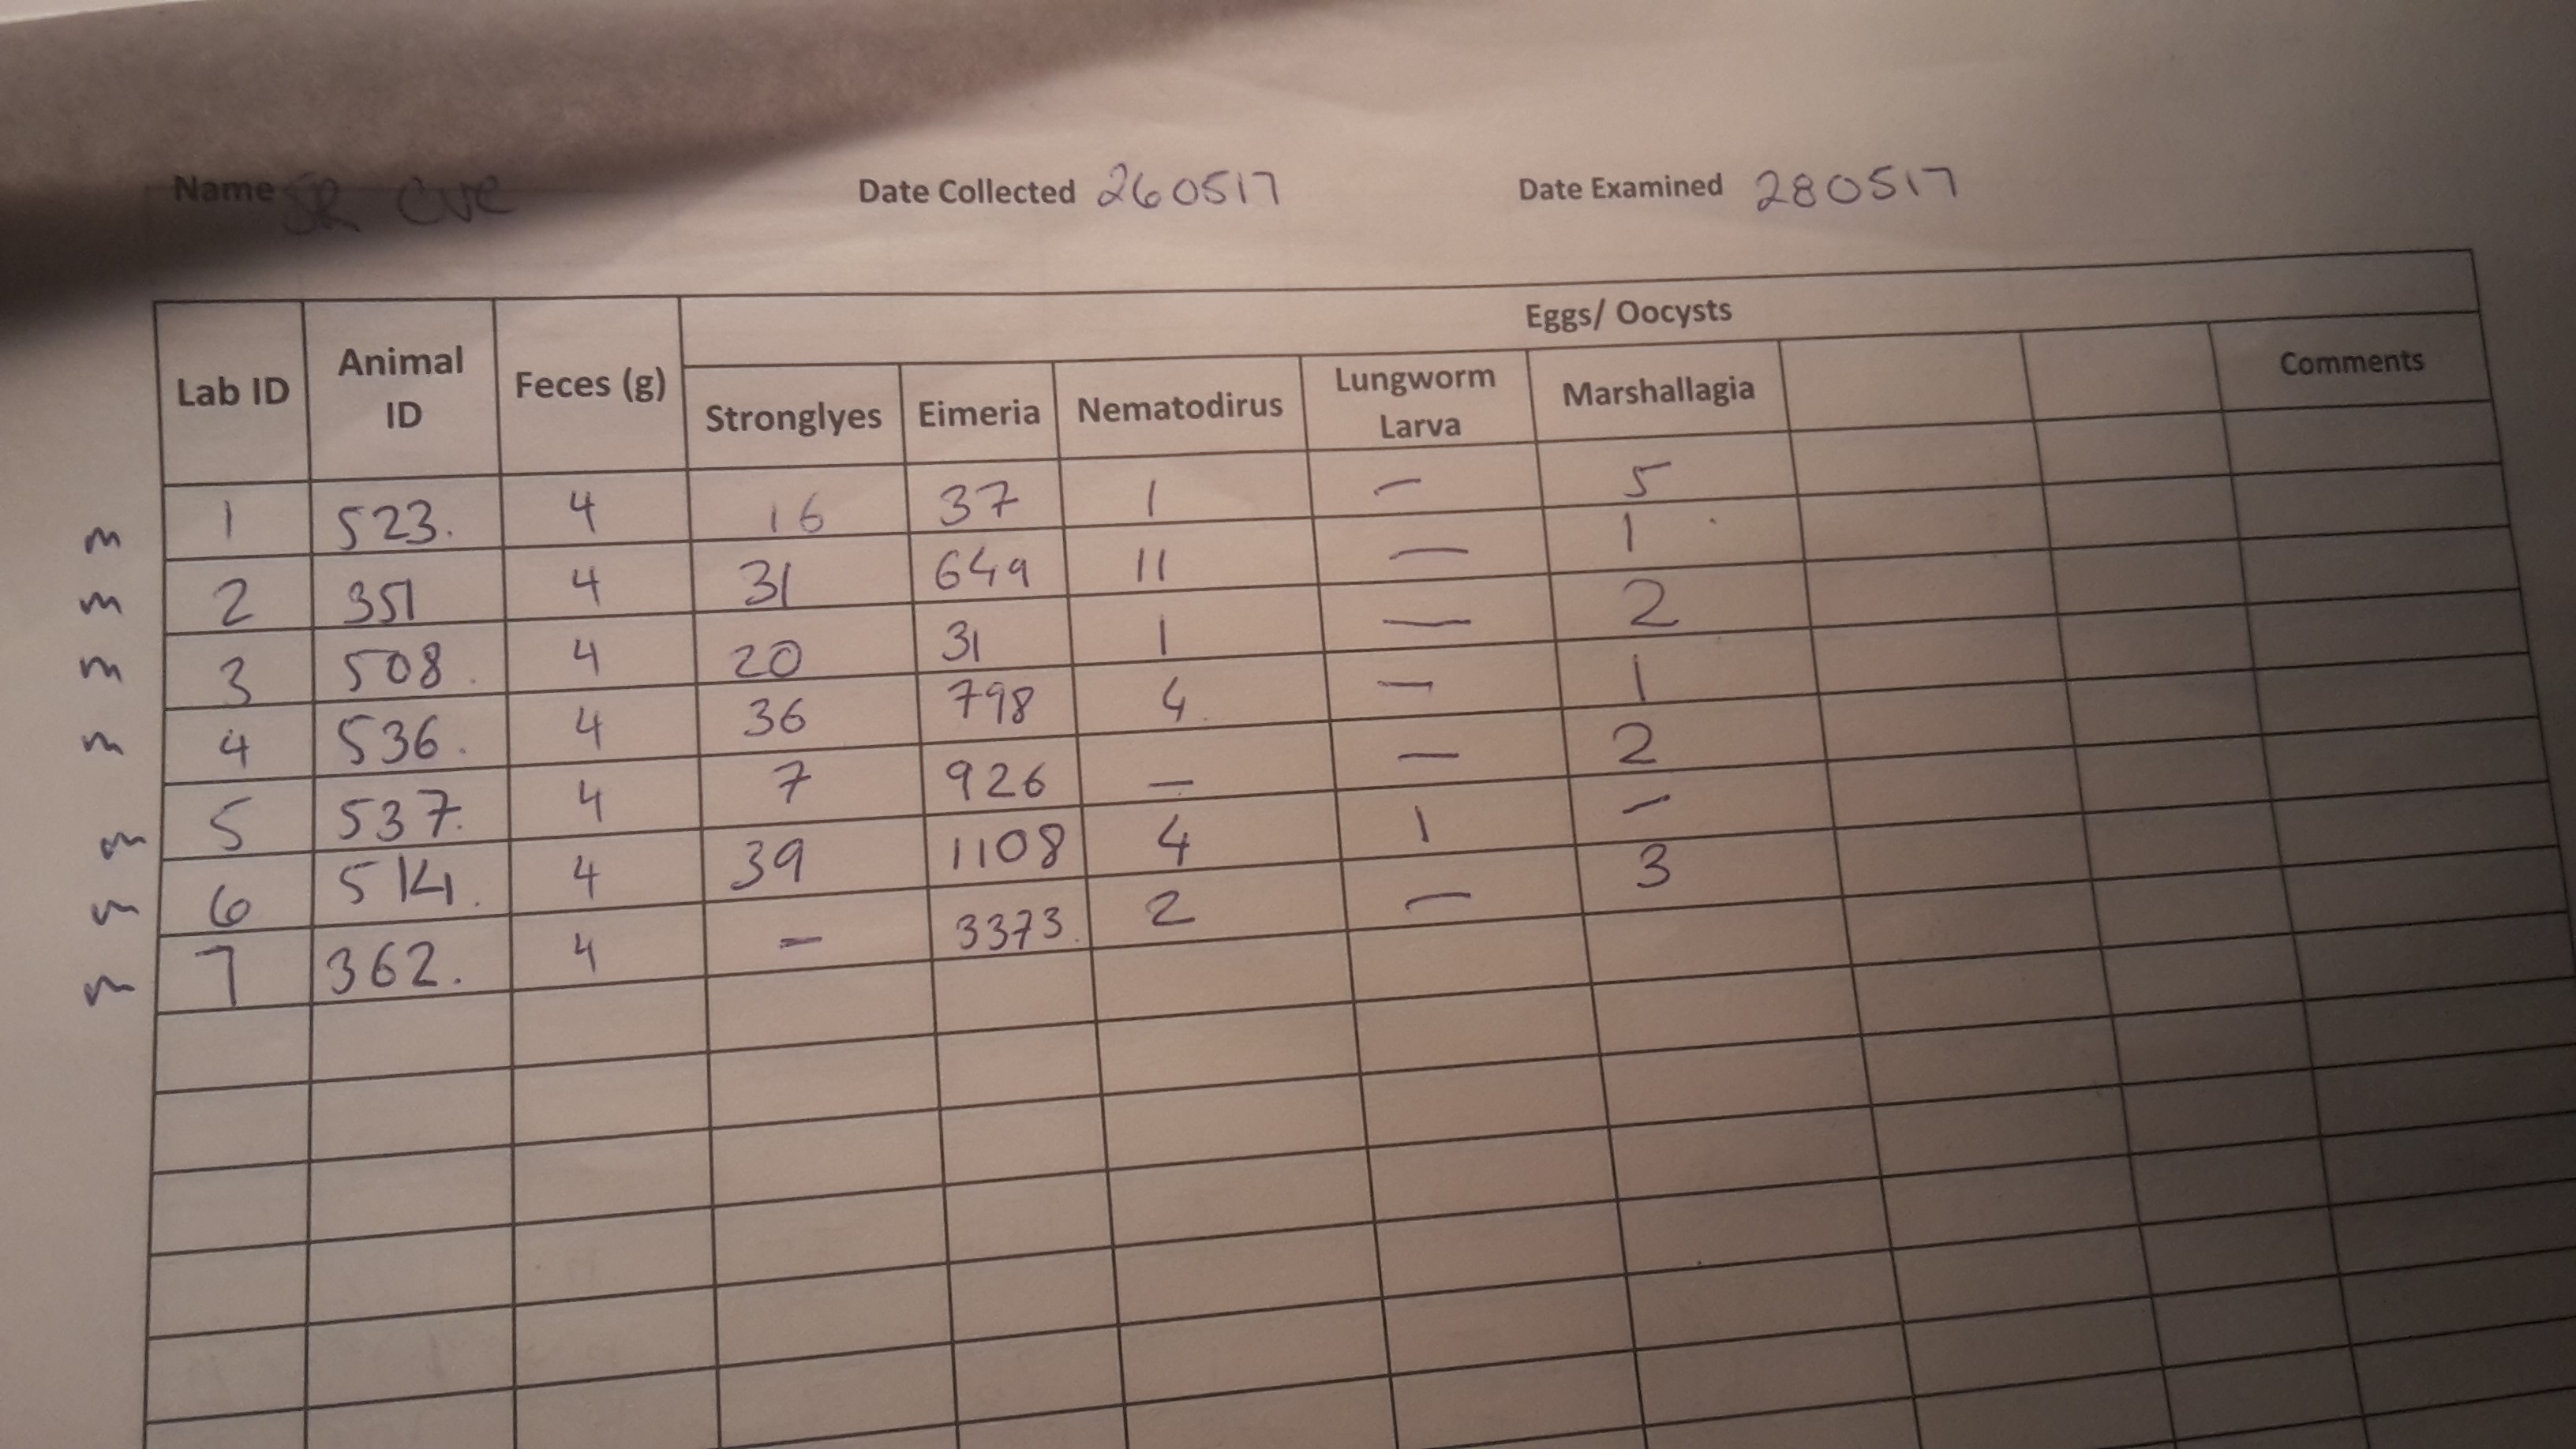 Name SR CVC Date Collected 260517 Date Examined 280517
Eggs/ Oocysts
Lab ID Animal ID Feces (g) Stronglyes Eimeria Nematodirus Lungworm Larva Marshallagia Comments
m 1 523. 4 16 37 1 — 5
m 2 351 4 31 649 11 — 1
m 3 508. 4 20 31 1 — 2
m 4 536. 4 36 798 4. — 1
m 5 537. 4 7 926 — — 2
m 6 514. 4 39 1108 4 1 —
m 7 362. 4 — 3373. 2 — 3